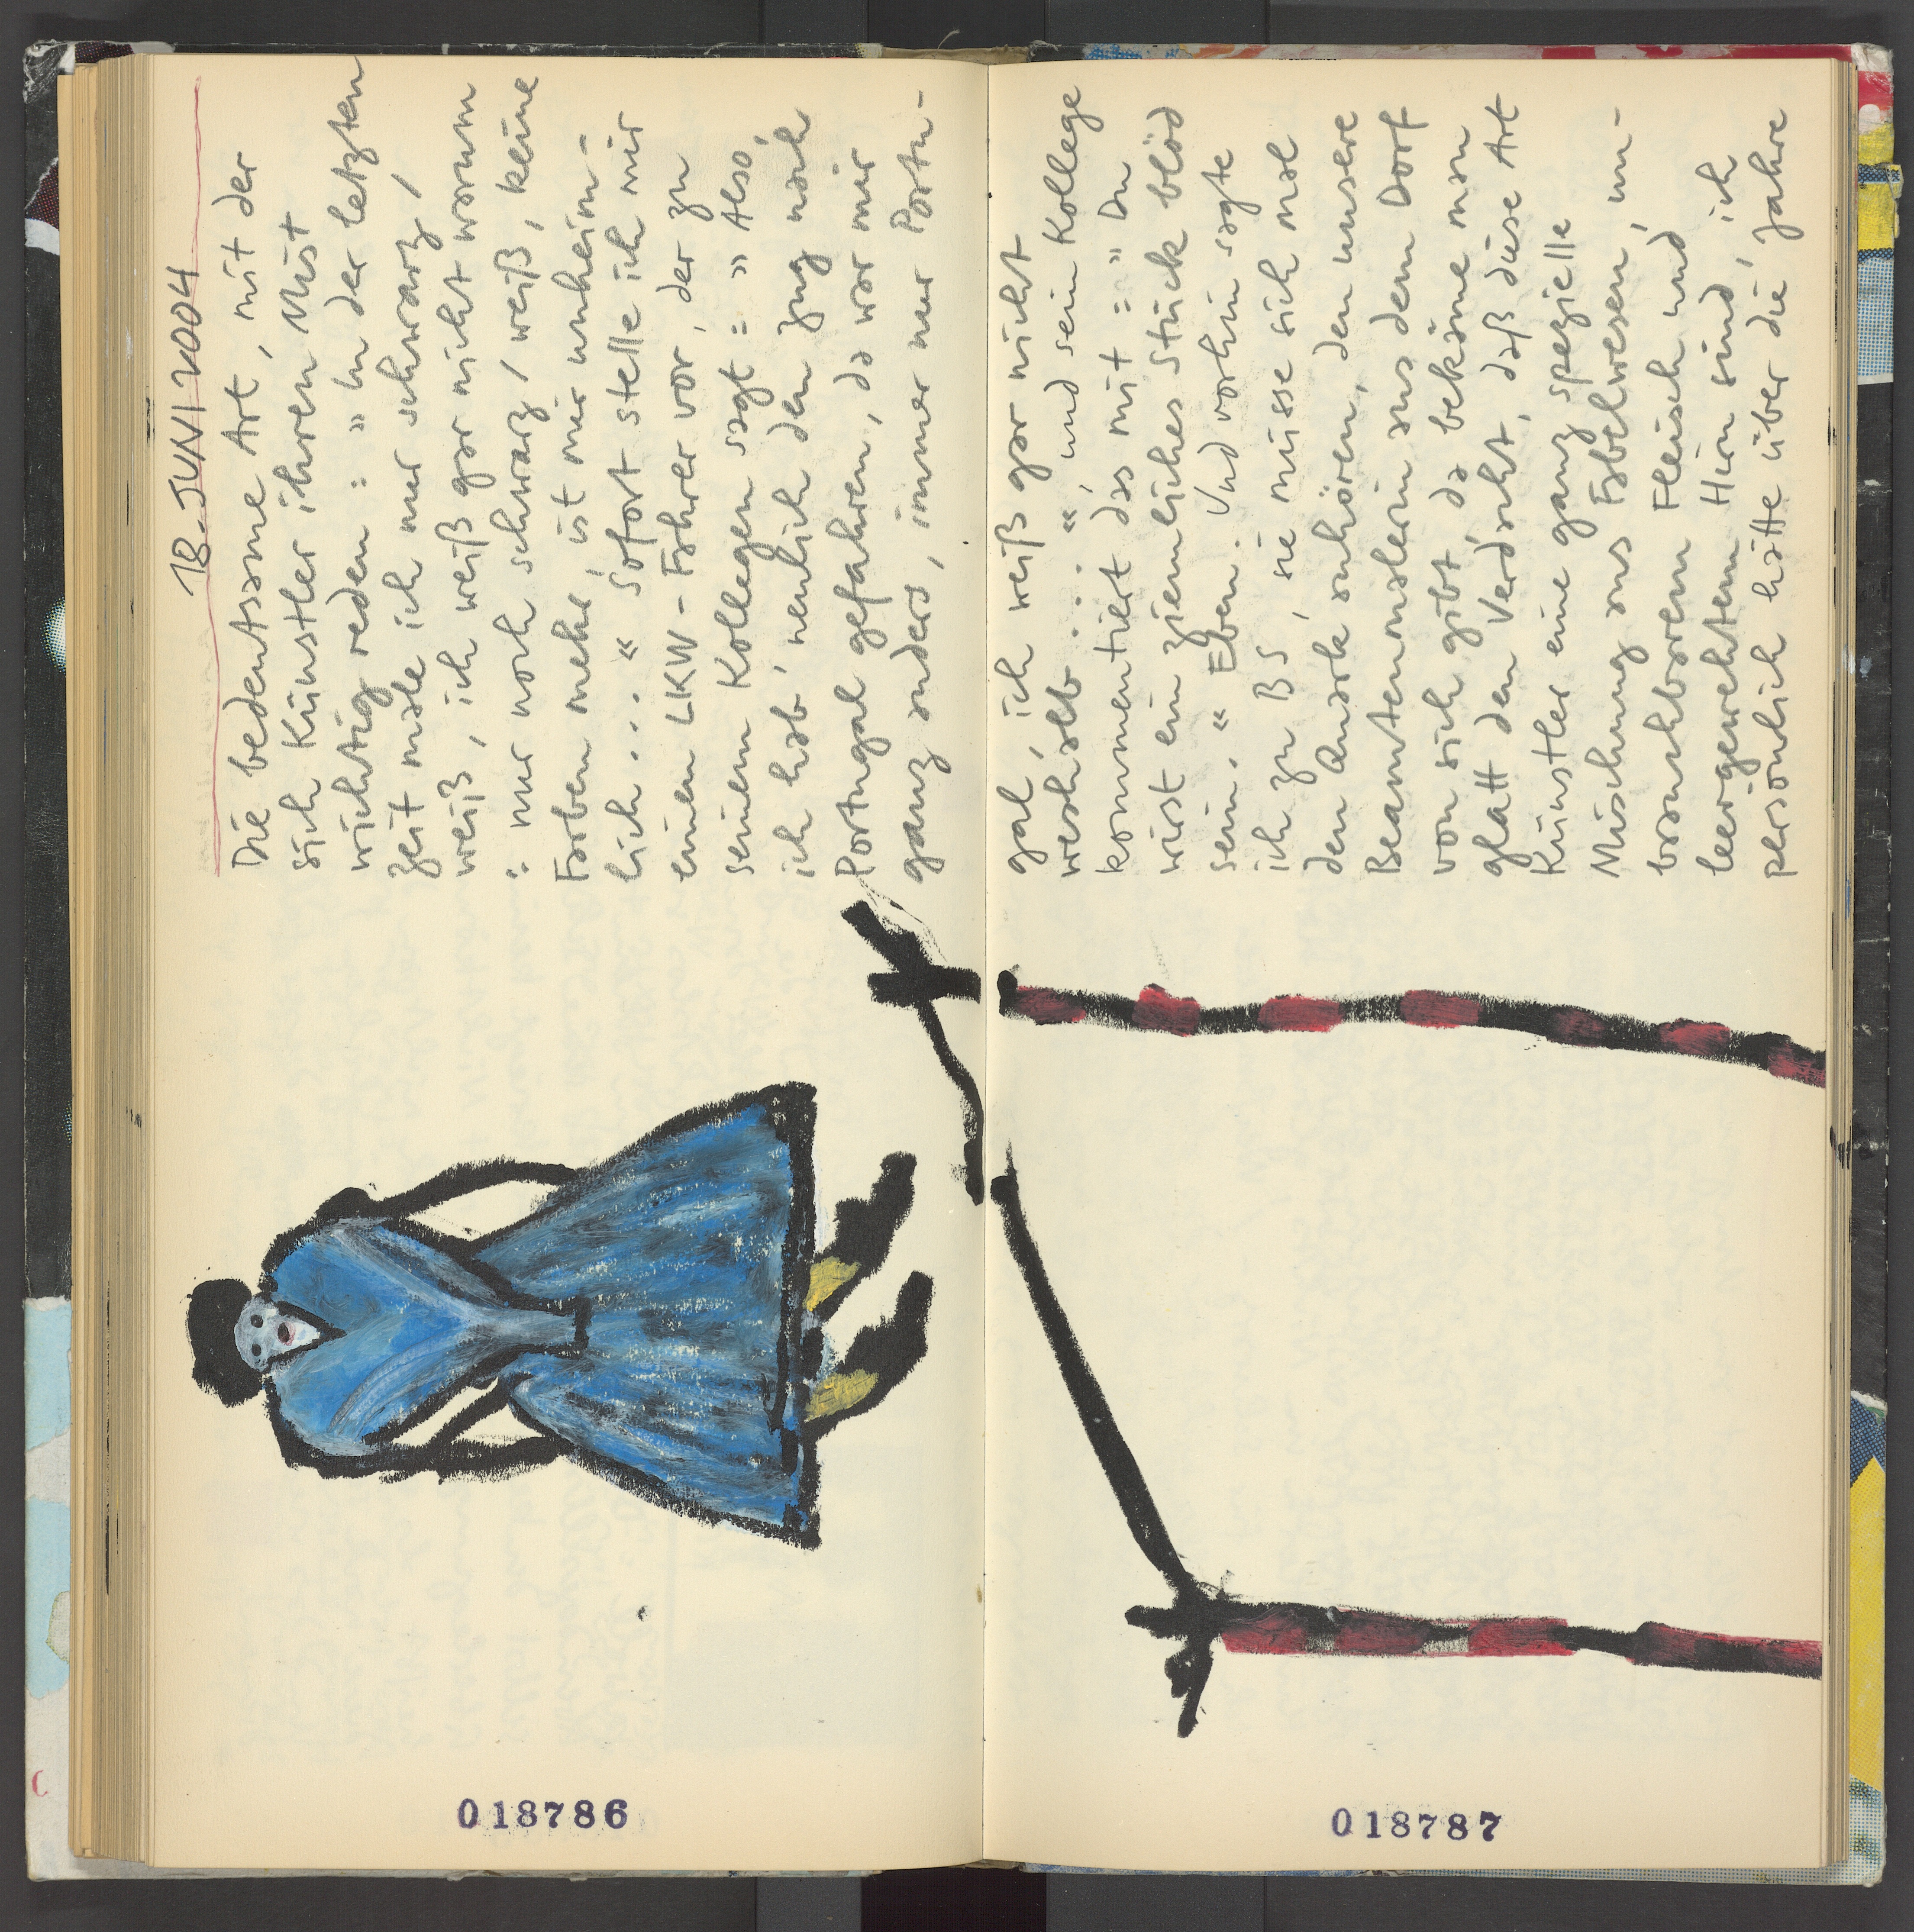 18. JUNI 2004
Die bedeutsame Art, mit der
sich Künstler ihren Mist
wichtig reden : » In der letzten
Zeit male ich nur schwarz /
weiß, ich weiß gar nicht warum
: nur noch schwarz / weiß, keine
Farben mehr, ist mir unheim-
lich . . . « Sofort stelle ich mir
einen LKW - Fahrer vor, der zu
seinem Kollegen sagt : » Also,
ich hab' neulich den Zug nach
Portugal gefahren, da war mir
ganz anders, immer nur Portu-
gal, ich weiß gar nicht
weshalb . . . «, und sein Kollege
kommentiert das mit : » Du
wirst ein ziemliches Stück blöd
sein. « Eben. Und vorhin sagte
ich zu BS, sie müsse sich mal
den Quark anhören, den unsere
Beamtenmalerin aus dem Dorf
von sich gibt, da bekäme man
glatt den Verdacht, daß diese Art
Künstler eine ganz spezielle
Mischung aus Fabelwesen, un-
brauchbarem Fleisch und
leergewehtem Hirn sind, ich
persönlich hätte über die Jahre
018786
018787